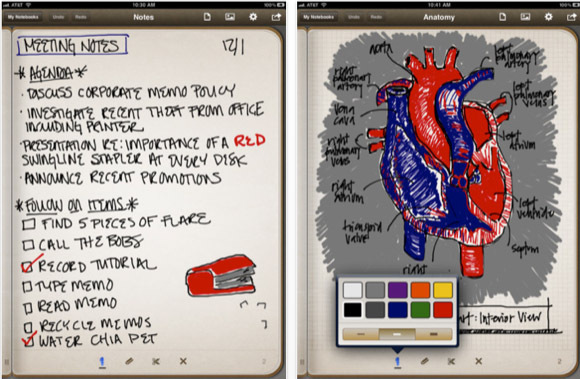 AT&T
10:30 AM
100%
My Notebooks
Undo
Redo
Notes
MEETING NOTES
12/1
*AGENDA*
· DISCUSS CORPORATE MEMO POLICY
· INVESTIGATE RECENT THEFT FROM OFFICE
INCLUDING PRINTER
· PRESENTATION RE: IMPORTANCE OF A RED
SWINGLINE STAPLER AT EVERY DISK
· ANNOUNCE RECENT PROMOTIONS
*FOLLOW ON ITEMS*
FIND 5 PIECES OF FLARE
CALL THE BOBS
RECORD TUTORIAL
TYPE MEMO
READ MEMO
RECYCLE MEMOS
WATER CHIA PET
2
AT&T
10:41 AM
100%
My Notebooks
Undo
Redo
Anatomy
aorta
left
pulmonary
artery
right
pulmonary
artery
left
pulmonary
veins
vena
cava
right
pulmonary
veins
left
atrium
right
atrium
left
ventricle
septum
right
: Interior View
2